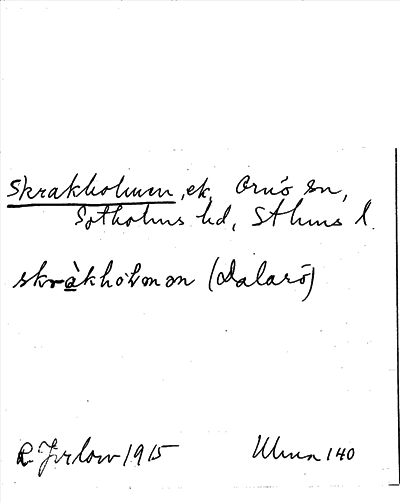 Skrakholmen, ek, Ornö sn,
Sotholms hd, Sthms l.
skràkhòlmən (Dalarö)
R. Jirlow 1915 Ulma 140